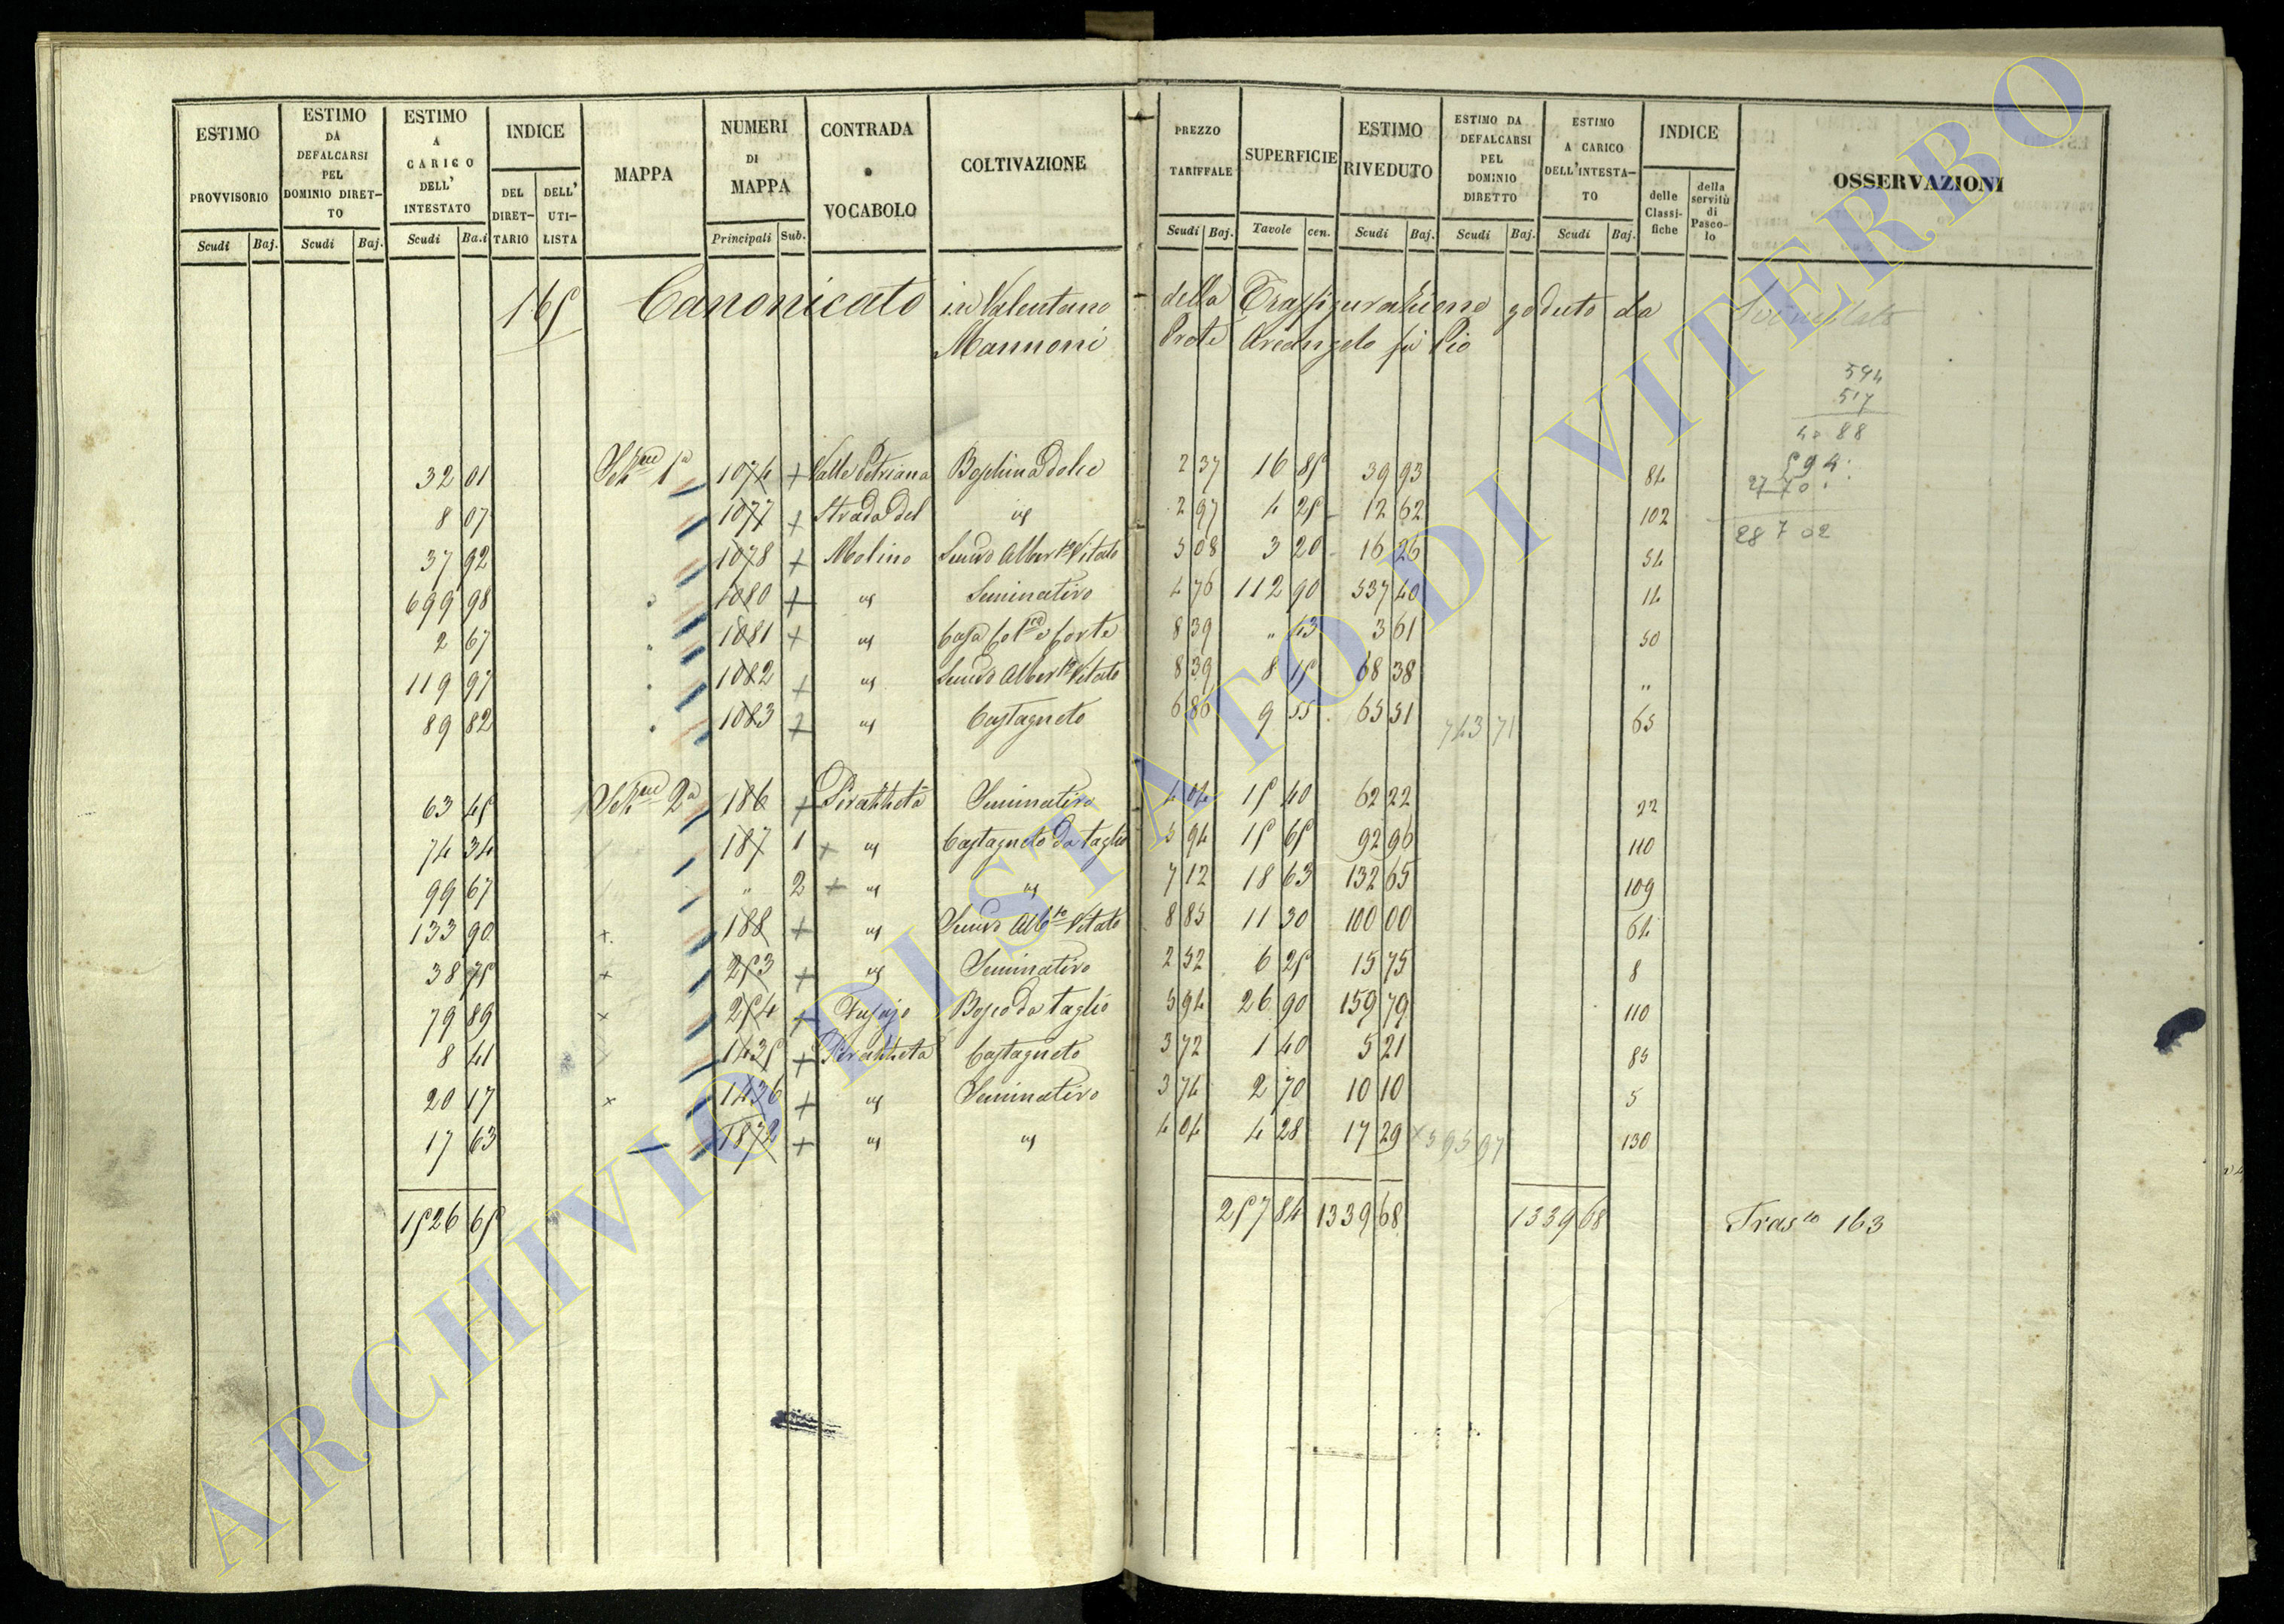 ESTIMO PROVVISORIO
ESTIMO DA DEFALCARSI PEL DOMINIO DIRETTO
ESTIMO A CARICO DELL' INTESTATO
INDICE
DEL DIRETTARIO
DELL' UTILISTA
MAPPA
NUMERI DI MAPPA
CONTRADA o VOCABOLO
COLTIVAZIONE
PREZZO TARIFFALE
SUPERFICIE
ESTIMO RIVEDUTO
ESTIMO DA DEFALCARSI PEL DOMINIO DIRETTO
ESTIMO A CARICO DELL'INTESTATO
INDICE
delle Classifiche
della servitù di Pascolo
OSSERVAZIONI
Scudi Baj. Scudi Baj. Scudi Ba.i Principali Sub. Scudi Baj. Tavole cen. Scudi Baj. Scudi Baj. Scudi Baj.
165 Canonicato in Valentano della Trasfigurazione goduto da
Mannoni Prete Arcangelo fu Pio
594
517
4088
594
2770
28702
32 01 Sezne 1a 1074 + Valle Petriana Boschina Dolce 2 37 16 85 39 93 84
8 07 1077 + Strada del id 2 97 4 25 12 62 102
37 92 1078 + Molino Semvo Alberto Vitato 5 08 3 20 16 26 54
699 98 1080 + id Seminativo 4 76 112 90 537 40 14
2 67 1081 + id Casa Colca e Corte 8 39 " 43 3 61 50
119 97 1082 + id Semvo Alberto Vitato 8 39 8 15 68 38 "
89 82 1083 + id Castagneto 6 86 9 55 65 51 743 71 65
63 45 Sezne 2a 186 + Pirazzeta Seminativo 4 04 15 40 62 22 22
74 34 187 1 + id Castagneto da taglio 5 94 15 65 92 96 110
99 67 " 2 + id id 7 12 18 63 132 65 109
133 90 + 188 + id Semvo Albto Vitato 8 85 11 30 100 00 64
38 75 + 253 + id Seminativo 2 52 6 25 15 75 8
79 89 + 254 + Bosco da taglio 5 94 26 90 159 79 110
8 41 1435 + Pirazzeta Castagneto 3 72 1 40 5 21 85
20 17 + 1436 + id Seminativo 3 74 2 70 10 10 5
17 63 1872 + id id 4 04 4 28 17 29 × 595 97 130
1526 65 257 84 1339 68 1339 68 Trasto 163
ARCHIVIO DI STATO DI VITERBO